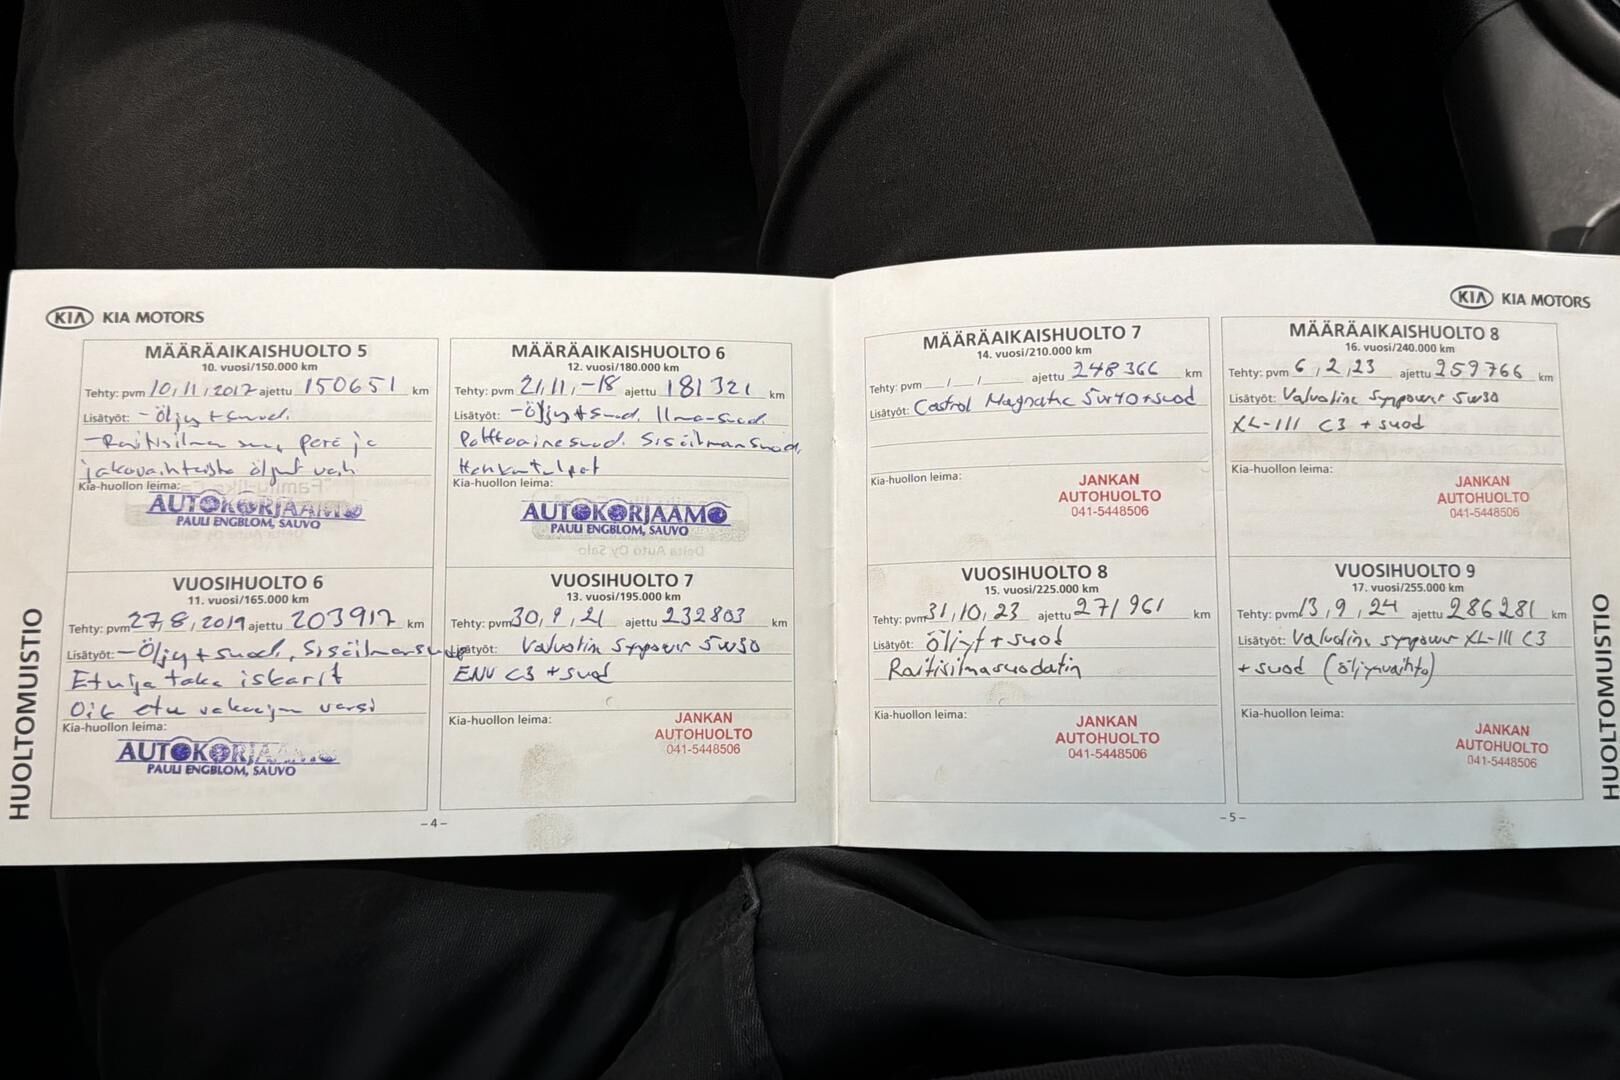 KIA KIA MOTORS
MÄÄRÄAIKAISHUOLTO 5
10. vuosi/150.000 km
Tehty: pvm 10,11,2017 ajettu 150651 km
Lisätyöt: -Öljy + suod.
-Raitisilman suo, perä ja
jakovaihteisto öljyt vaih
Kia-huollon leima:
AUTOKORJAAMO
PAULI ENGBLOM, SAUVO
MÄÄRÄAIKAISHUOLTO 6
12. vuosi/180.000 km
Tehty: pvm 21,11,-18 ajettu 181321 km
Lisätyöt: -Öljy + suod. Ilma-suod.
Polttoainesuod. Sisäilmansuod,
Hehkutulpat
Kia-huollon leima:
AUTOKORJAAMO
PAULI ENGBLOM, SAUVO
Delta Auto Oy Salo
VUOSIHUOLTO 6
11. vuosi/165.000 km
Tehty: pvm 27,8,2019 ajettu 203917 km
Lisätyöt: -Öljy + suod, Sisäilmansuod
Etu ja taka iskarit
Oik etu vakaajan varsi
Kia-huollon leima:
AUTOKORJAAMO
PAULI ENGBLOM, SAUVO
VUOSIHUOLTO 7
13. vuosi/195.000 km
Tehty: pvm 30,9,21 ajettu 232803 km
Lisätyöt: Valvolin Synpower 5w30
ENV C3 + suod
Kia-huollon leima:
JANKAN
AUTOHUOLTO
041-5448506
HUOLTOMUISTIO
-4-
KIA KIA MOTORS
MÄÄRÄAIKAISHUOLTO 7
14. vuosi/210.000 km
Tehty: pvm __/__/____ ajettu 248366 km
Lisätyöt: Castrol Magnatic 5w40+suod
Kia-huollon leima:
JANKAN
AUTOHUOLTO
041-5448506
MÄÄRÄAIKAISHUOLTO 8
16. vuosi/240.000 km
Tehty: pvm 6,2,23 ajettu 259766 km
Lisätyöt: Valvoline Synpower 5w30
XL-III C3 + suod
Kia-huollon leima:
JANKAN
AUTOHUOLTO
041-5448506
VUOSIHUOLTO 8
15. vuosi/225.000 km
Tehty: pvm 31,10,23 ajettu 271961 km
Lisätyöt: öljyt + suod
Raitisilmasuodatin
Kia-huollon leima:
JANKAN
AUTOHUOLTO
041-5448506
VUOSIHUOLTO 9
17. vuosi/255.000 km
Tehty: pvm 13,9,24 ajettu 286281 km
Lisätyöt: Valvolin synpower XL-III C3
+ suod (öljynvaihto)
Kia-huollon leima:
JANKAN
AUTOHUOLTO
041-5448506
HUOLTOMUISTIO
-5-